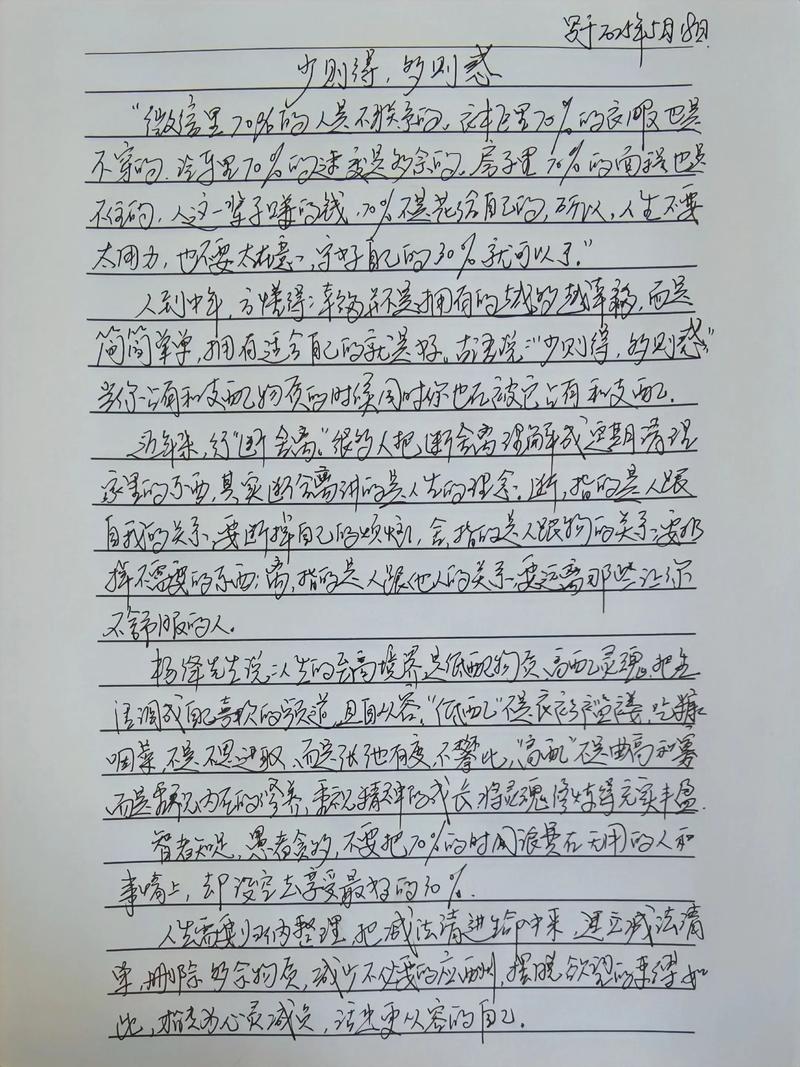 写于2025年5月18日.
少则得，多则惑
“微信里70%的人是不联系的。衣柜里70%的衣服也是
不穿的. 汽车里70%的速度是多余的。房子里70%的面积也是
不住的，人这一辈子赚的钱，70%不是花给自己的，所以，人生不要
太用力，也不要太在意，守好自己的30%就可以了。”
人到中年，方懂得：幸福并不是拥有的越多越幸福，而是
简简单单，拥有适合自己的就是好。古语说：“少则得，多则惑”
当你占有和支配物质的时候同时你也在被它占有和支配.
近年来，行“断舍离。”很多人把断舍离理解成定期清理
家里的东西，其实断舍离讲的是人生的理念。断，指的是人跟
自我的关系：要断掉自己的烦恼，舍，指的是人跟物的关系：要扔
掉不需要的东西；离，指的是人跟他人的关系：要远离那些让你
不舒服的人。
杨绛先生说：人生的至高境界是低配物质、高配灵魂，把生
活调成自己喜欢的频道，且自从容。“低配”不是衣衫褴褛，吃糠
咽菜，不是不思进取、而是张弛有度，不攀比，“高配”不是曲高和寡
而是重视内在的修养，重视精神的成长，将灵魂修炼得充实丰盈.
智者知足，愚者贪多，不要把70%的时间浪费在无用的人和
事情上，却没空去享受最好的30%.
人生需要归纳整理，把减法请进生命中来，建立减法清
单，删除多余物质，减少不必要的应酬，摆脱欲望的束缚，如
此，才能为心灵减负，活出更从容的自己.